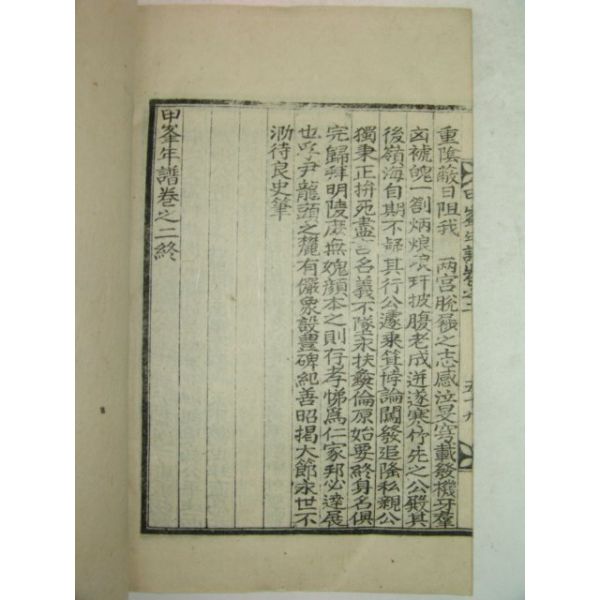 甲峯年譜卷之二
重陰蔽日阻我 兩宮脫屣之志感泣旻穹載發機牙羣
凶褫魄一劄炳烺琅玕披腹老成迸逐寒 先之公殿其
後嶺海自期不疑其行公遽乘箕悖論闖發追隆私親公
獨秉正拚死盡言名義不墜永扶彜倫原始要終身名俱
完歸拜明陵庶無媿顔本之則存孝悌爲仁家邦必達展
也 尹龍頭之麓有儼象設豊碑紀善昭揭大節永世不
泐待良史筆
甲峯年譜卷之二終